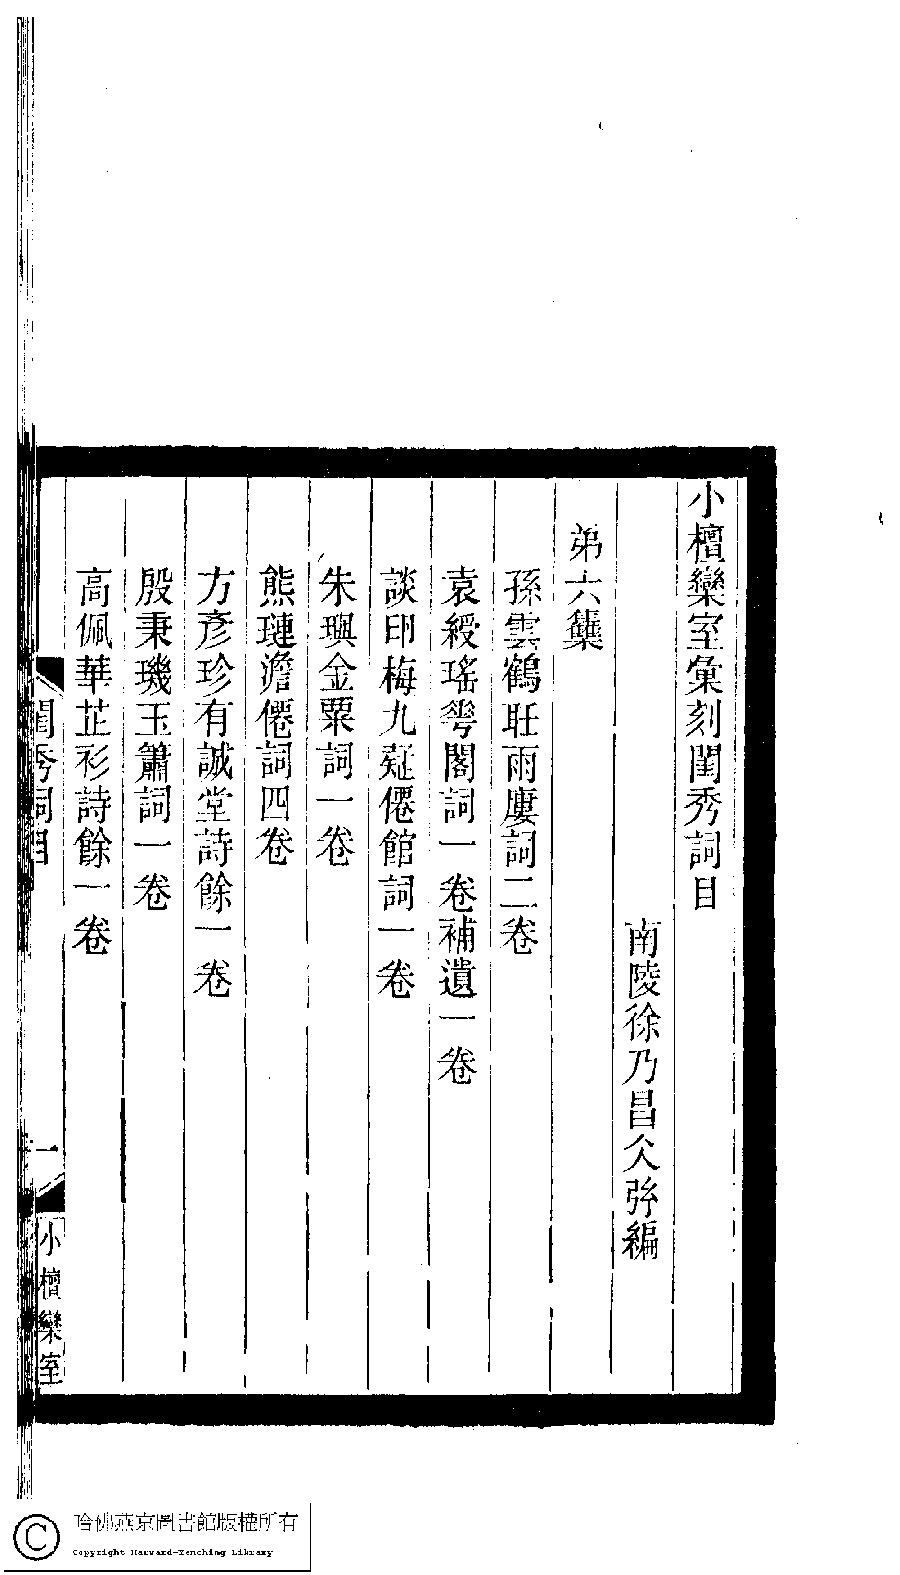 小檀欒室彙刻閨秀詞目
南陵徐乃昌仌𢎞編
弟六集
孫雲鶴聽雨廔詞二卷
袁綬瑤華閣詞一卷補遺一卷
談印梅九疑僊館詞一卷
朱璵金粟詞一卷
熊璉澹僊詞四卷
方彥珍有誠堂詩餘一卷
殷秉璣玉簫詞一卷
高佩華芷衫詩餘一卷
閨秀詞目
一
小檀欒室
哈佛燕京圖書館版權所有
Copyright Harvard-Yenching Library